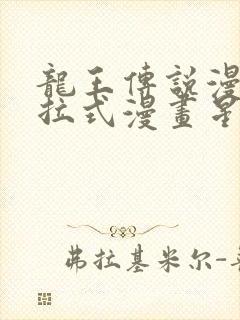 龍王傳說漫
拉式漫畫星
弗拉基米尔-